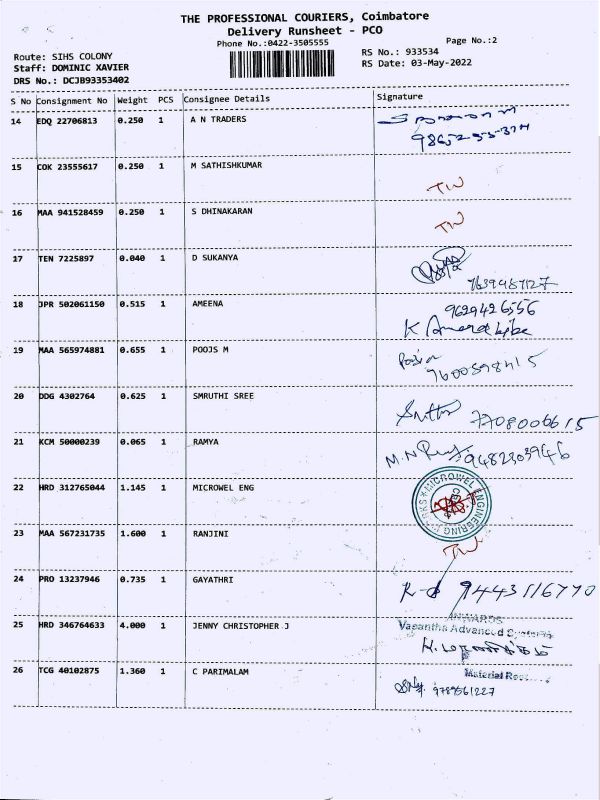 THE PROFESSIONAL COURIERS, Coimbatore
Delivery Runsheet - PCO
Phone No.:0422-3505555
Page No.:2
Route: SIHS COLONY
RS No.: 933534
Staff: DOMINIC XAVIER
RS Date: 03-May-2022
DRS No.: DCJB93353402
S No Consignment No Weight PCS Consignee Details Signature
14 EDQ 22706813 0.250 1 A N TRADERS
15 COK 23555617 0.250 1 M SATHISHKUMAR
16 MAA 941528459 0.250 1 S DHINAKARAN
17 TEN 7225897 0.040 1 D SUKANYA
18 JPR 502061150 0.515 1 AMEENA 9629426556
19 MAA 565974881 0.655 1 POOJS M
20 DDG 4302764 0.625 1 SMRUTHI SREE 7708006615
21 KCM 50000239 0.065 1 RAMYA 9482303946
22 HRD 312765044 1.145 1 MICROWEL ENG MICROWEL ENGINEERING
23 MAA 567231735 1.600 1 RANJINI
24 PRO 13237946 0.735 1 GAYATHRI 9443116770
25 HRD 346764633 4.000 1 JENNY CHRISTOPHER J INWARDS
Vasantha Advanced Systems
26 TCG 40102875 1.360 1 C PARIMALAM Material
9789561227